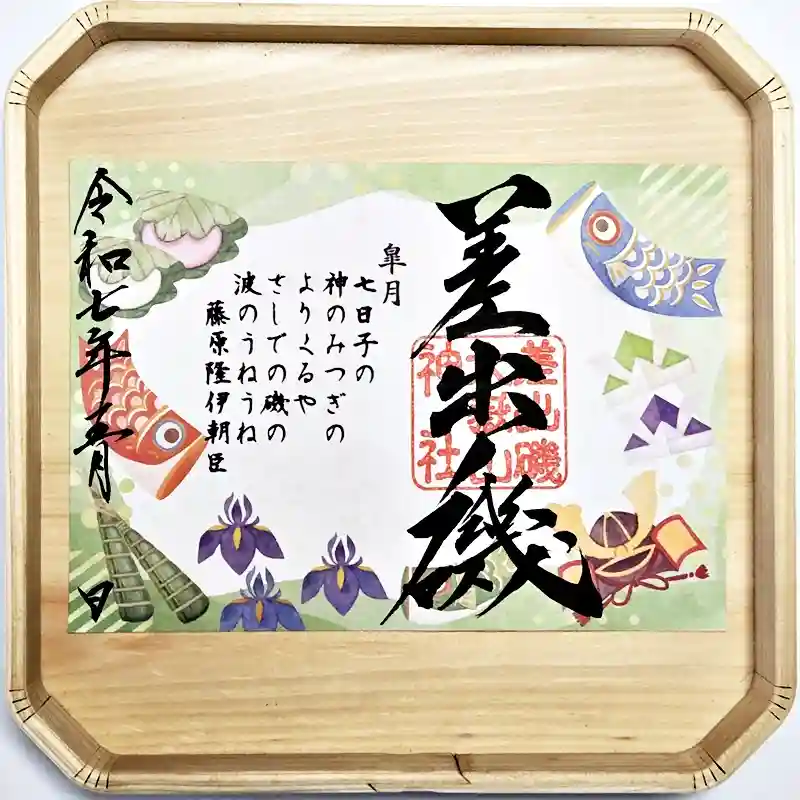 差出磯
差出磯
大嶽山
神社
皐月
七日子の
神のみつぎの
よりくるや
さしでの磯の
波のうねうね
藤原隆伊朝臣
令和七年五月 日